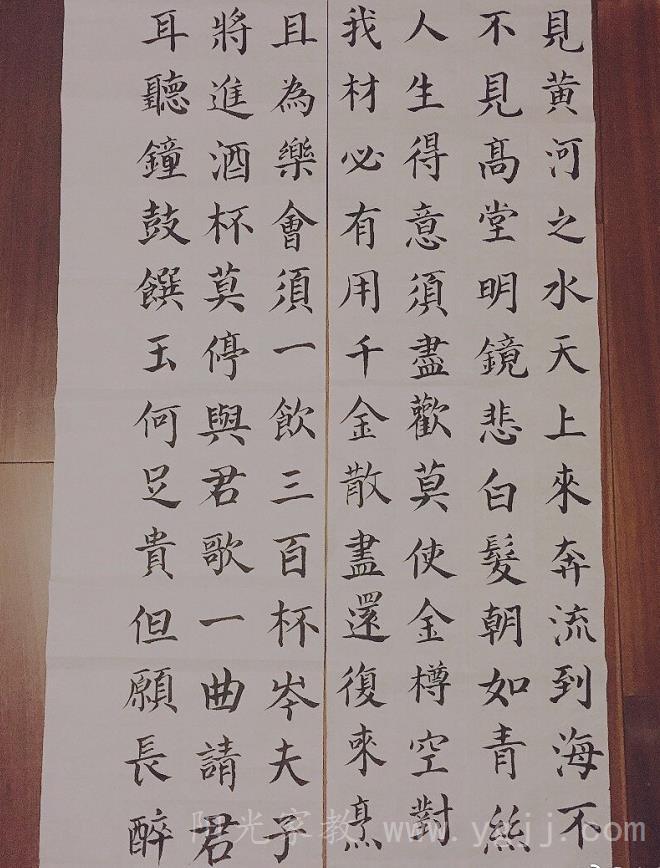 見黄河之水天上來奔流到海不
不見髙堂明鏡悲白髮朝如青絲
人生得意須盡歡莫使金樽空對
我材必有用千金散盡還復來烹
且為樂會須一飲三百杯岑夫子
將進酒杯莫停與君歌一曲請君
耳聽鐘鼓饌玉何足貴但願長醉
阳光家教 www.ygjj.com